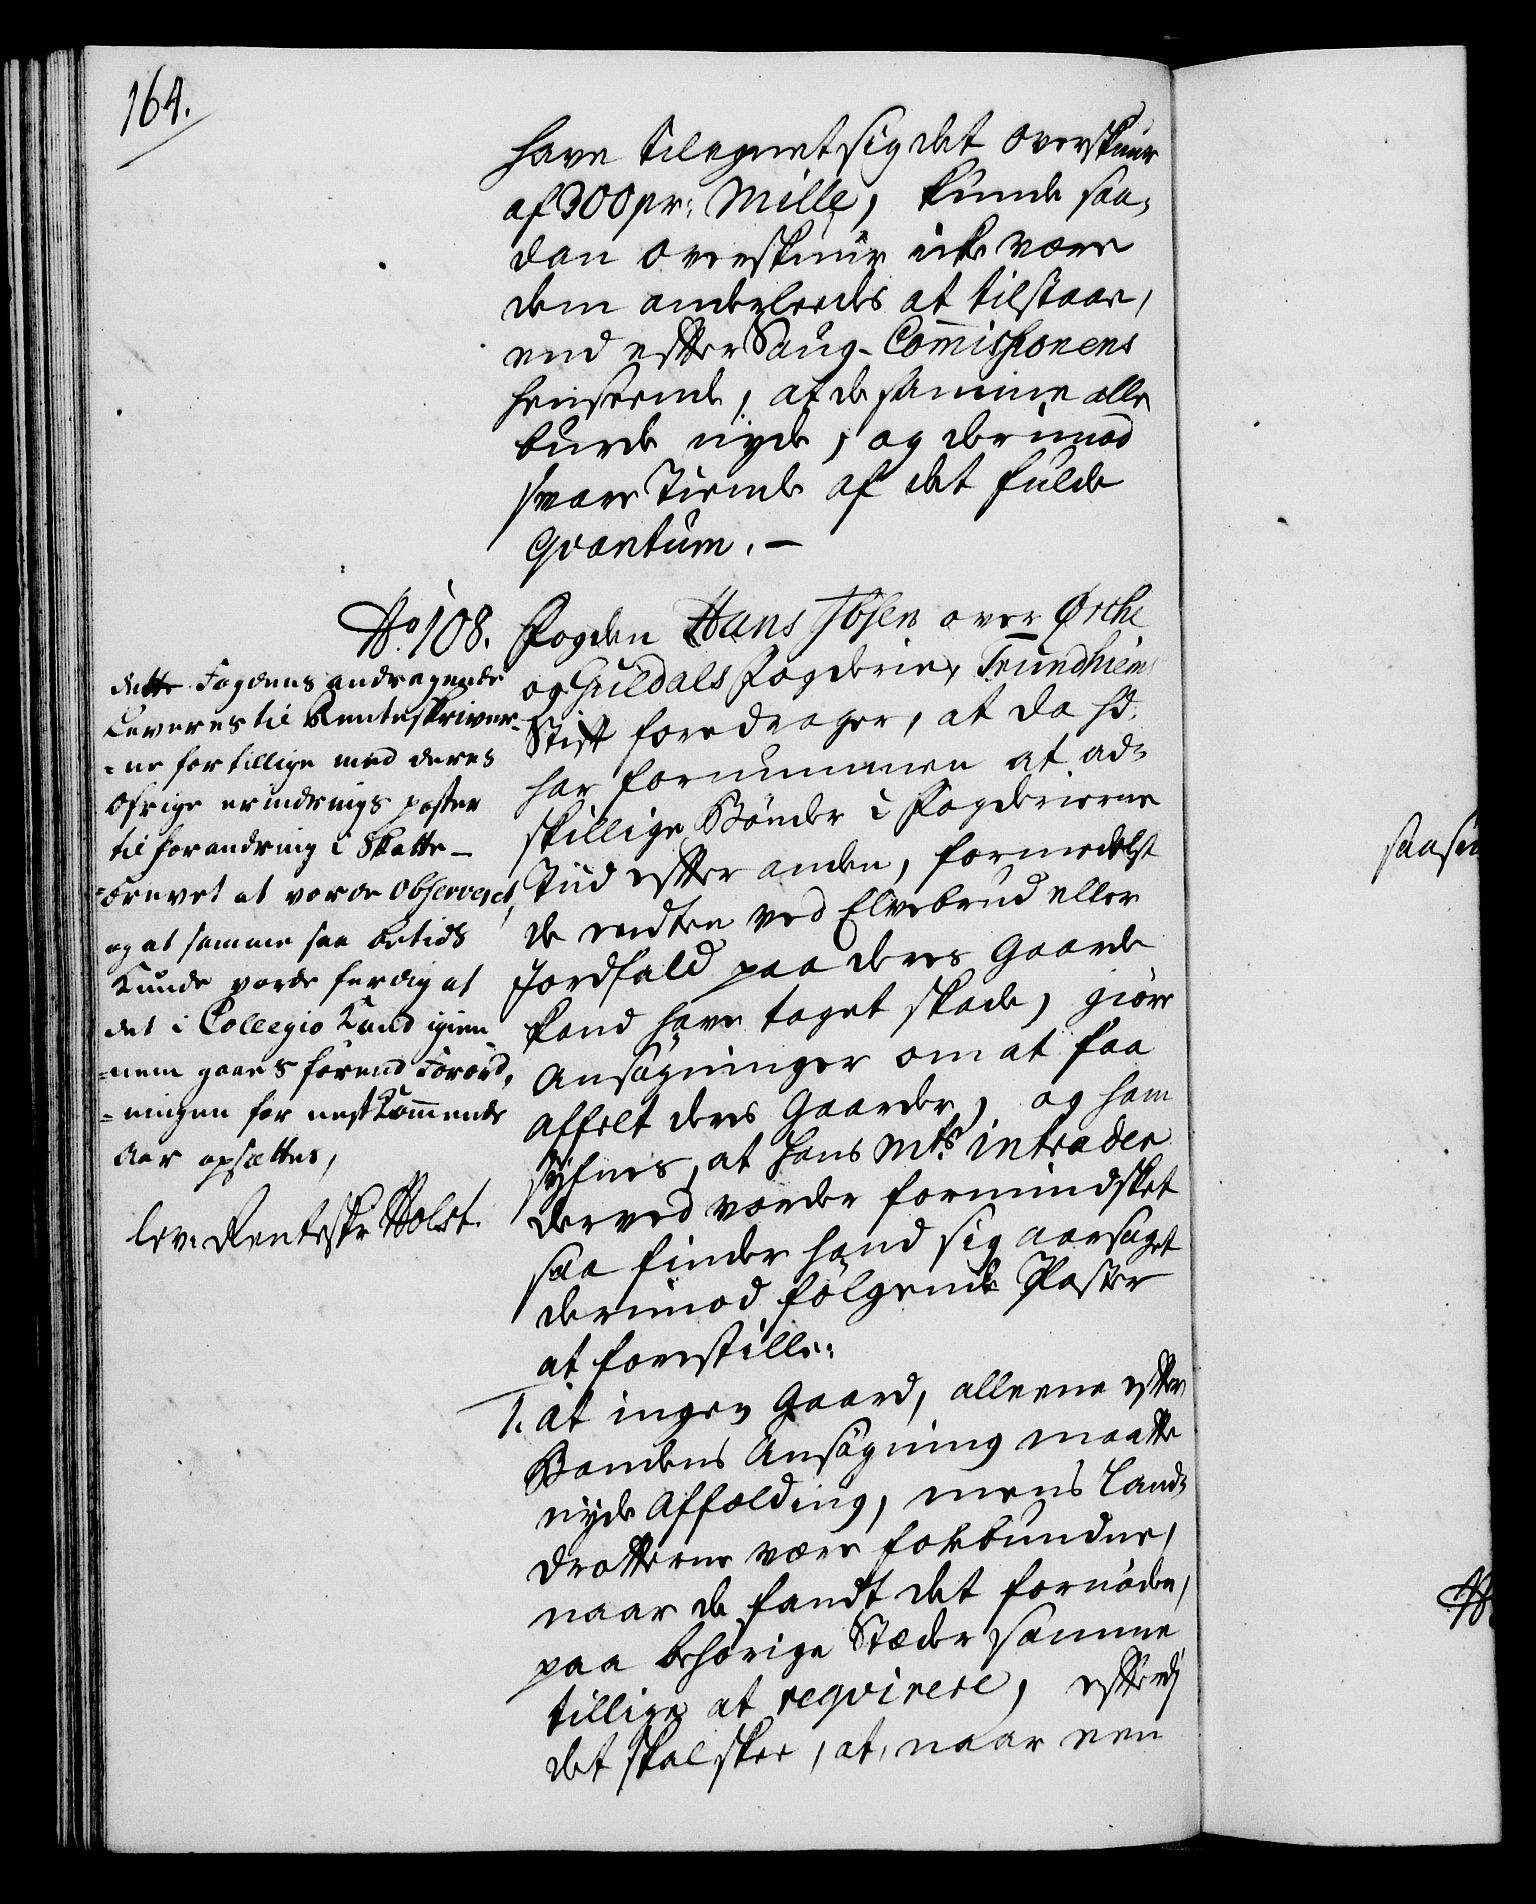 164.
have tilegnet sig det overskuur
af 300 pr: Mille, kunde saa,
dan overskuur icke være
dem anderleedes at tilstaae,
end efter Saug-Commissionens
henseende, at de samme alle
burde nyde, og derimod
svare Tiende af det fulde
Qvantum. —
No. 108.
Fogden Hans Ibsen over Ørche
og Guldals Fogderie, Trundhiems
Stift foredrager, at da hd.
har fornummen at ad-
skillige Bönder i Fogderierne
Tiid efter anden, formedelst
de endten ved Elvebrud eller
Jordfald paa deres Gaarde
kand have taget skade, giöre
Ansögninger om at faa
affelt deres Gaarder, og ham
syfnes, at Hans Mts. intrader
derved vorder formindsket
saa finder hand sig aarsaget
derimod fölgende Poster
at forestille:
1. at ingen Gaard, alleene efter
Bondens Ansögning maatte
nyde Affælding, mens Land-
drotterne være forbundne,
naar de fandt det fornöden,
paa behörige Stæder samme
tillige at reqvirere, efterdj
det skal skee, at, naar een
dette Fogdens andragende
Leveres til Renteskriver-
-ne for tillige med deres
öfrige erindrings poster
til forandring i Skatte-
-brevet at vorde Observeret,
og at samme saa betids
Kunde vorde ferdig at
det i Collegio Kand igien-
-nem gaaes förend Forord,
-ningen for nestkommende
Aar opsættes,
lev. Renteskr Holst.
saasn